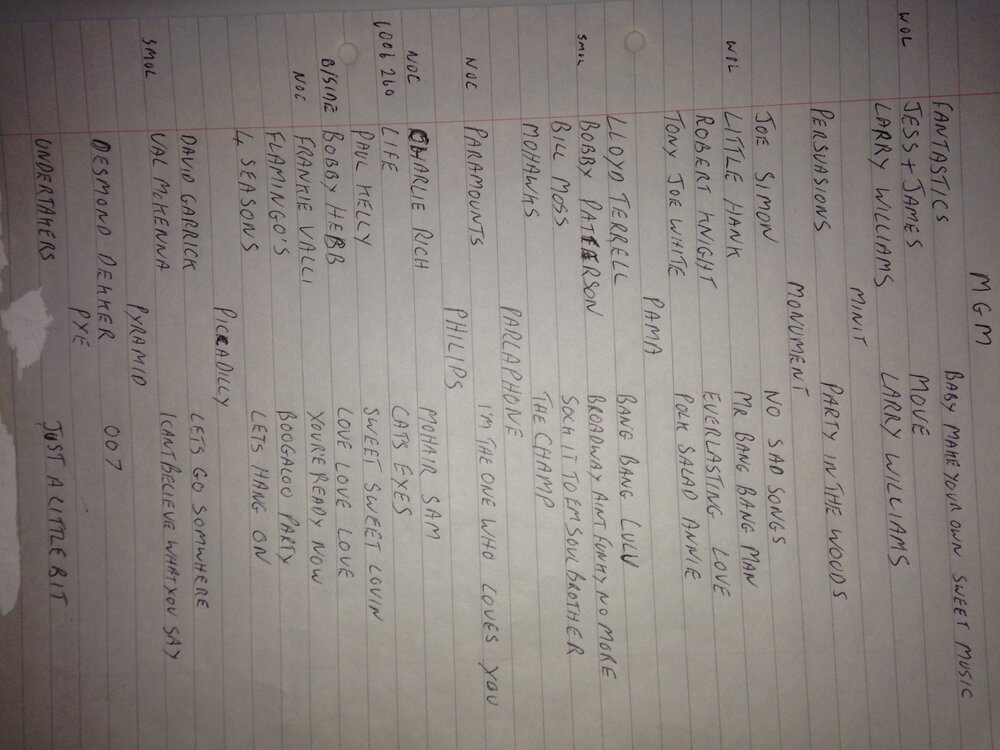 MGM
FANTASTICS BABY MAKE YOUR OWN SWEET MUSIC
WOL JESS + JAMES MOVE
LARRY WILLIAMS LARRY WILLIAMS
MINIT
PERSUASIONS PARTY IN THE WOODS
MONUMENT
JOE SIMON NO SAD SONGS
WOL LITTLE HANK MR BANG BANG MAN
ROBERT KNIGHT EVERLASTING LOVE
TONY JOE WHITE POLK SALAD ANNIE
PAMA
LLOYD TERRELL BANG BANG LULU
SMOL BOBBY PATTERSON BROADWAY AINT FUNKY NO MORE
BILL MOSS SOCK IT TO EM SOUL BROTHER
MOHAWKS THE CHAMP
PARLAPHONE
NOC PARAMOUNTS I'M THE ONE WHO LOVES YOU
PHILIPS
NOC CHARLIE RICH MOHAIR SAM
6006 260 LIFE CATS EYES
PAUL KELLY SWEET SWEET LOVIN
B/SIDE BOBBY HEBB LOVE LOVE LOVE
NOC FRANKIE VALLI YOU'RE READY NOW
FLAMINGO'S BOOGALOO PARTY
4 SEASONS LETS HANG ON
PICKADILLY
DAVID GARRICK LETS GO SOMWHERE
SMOL VAL McKENNA I CANT BELIEVE WHAT YOU SAY
PYRAMID
DESMOND DEKKER 007
PYE
UNDERTAKERS JUST A LITTLE BIT